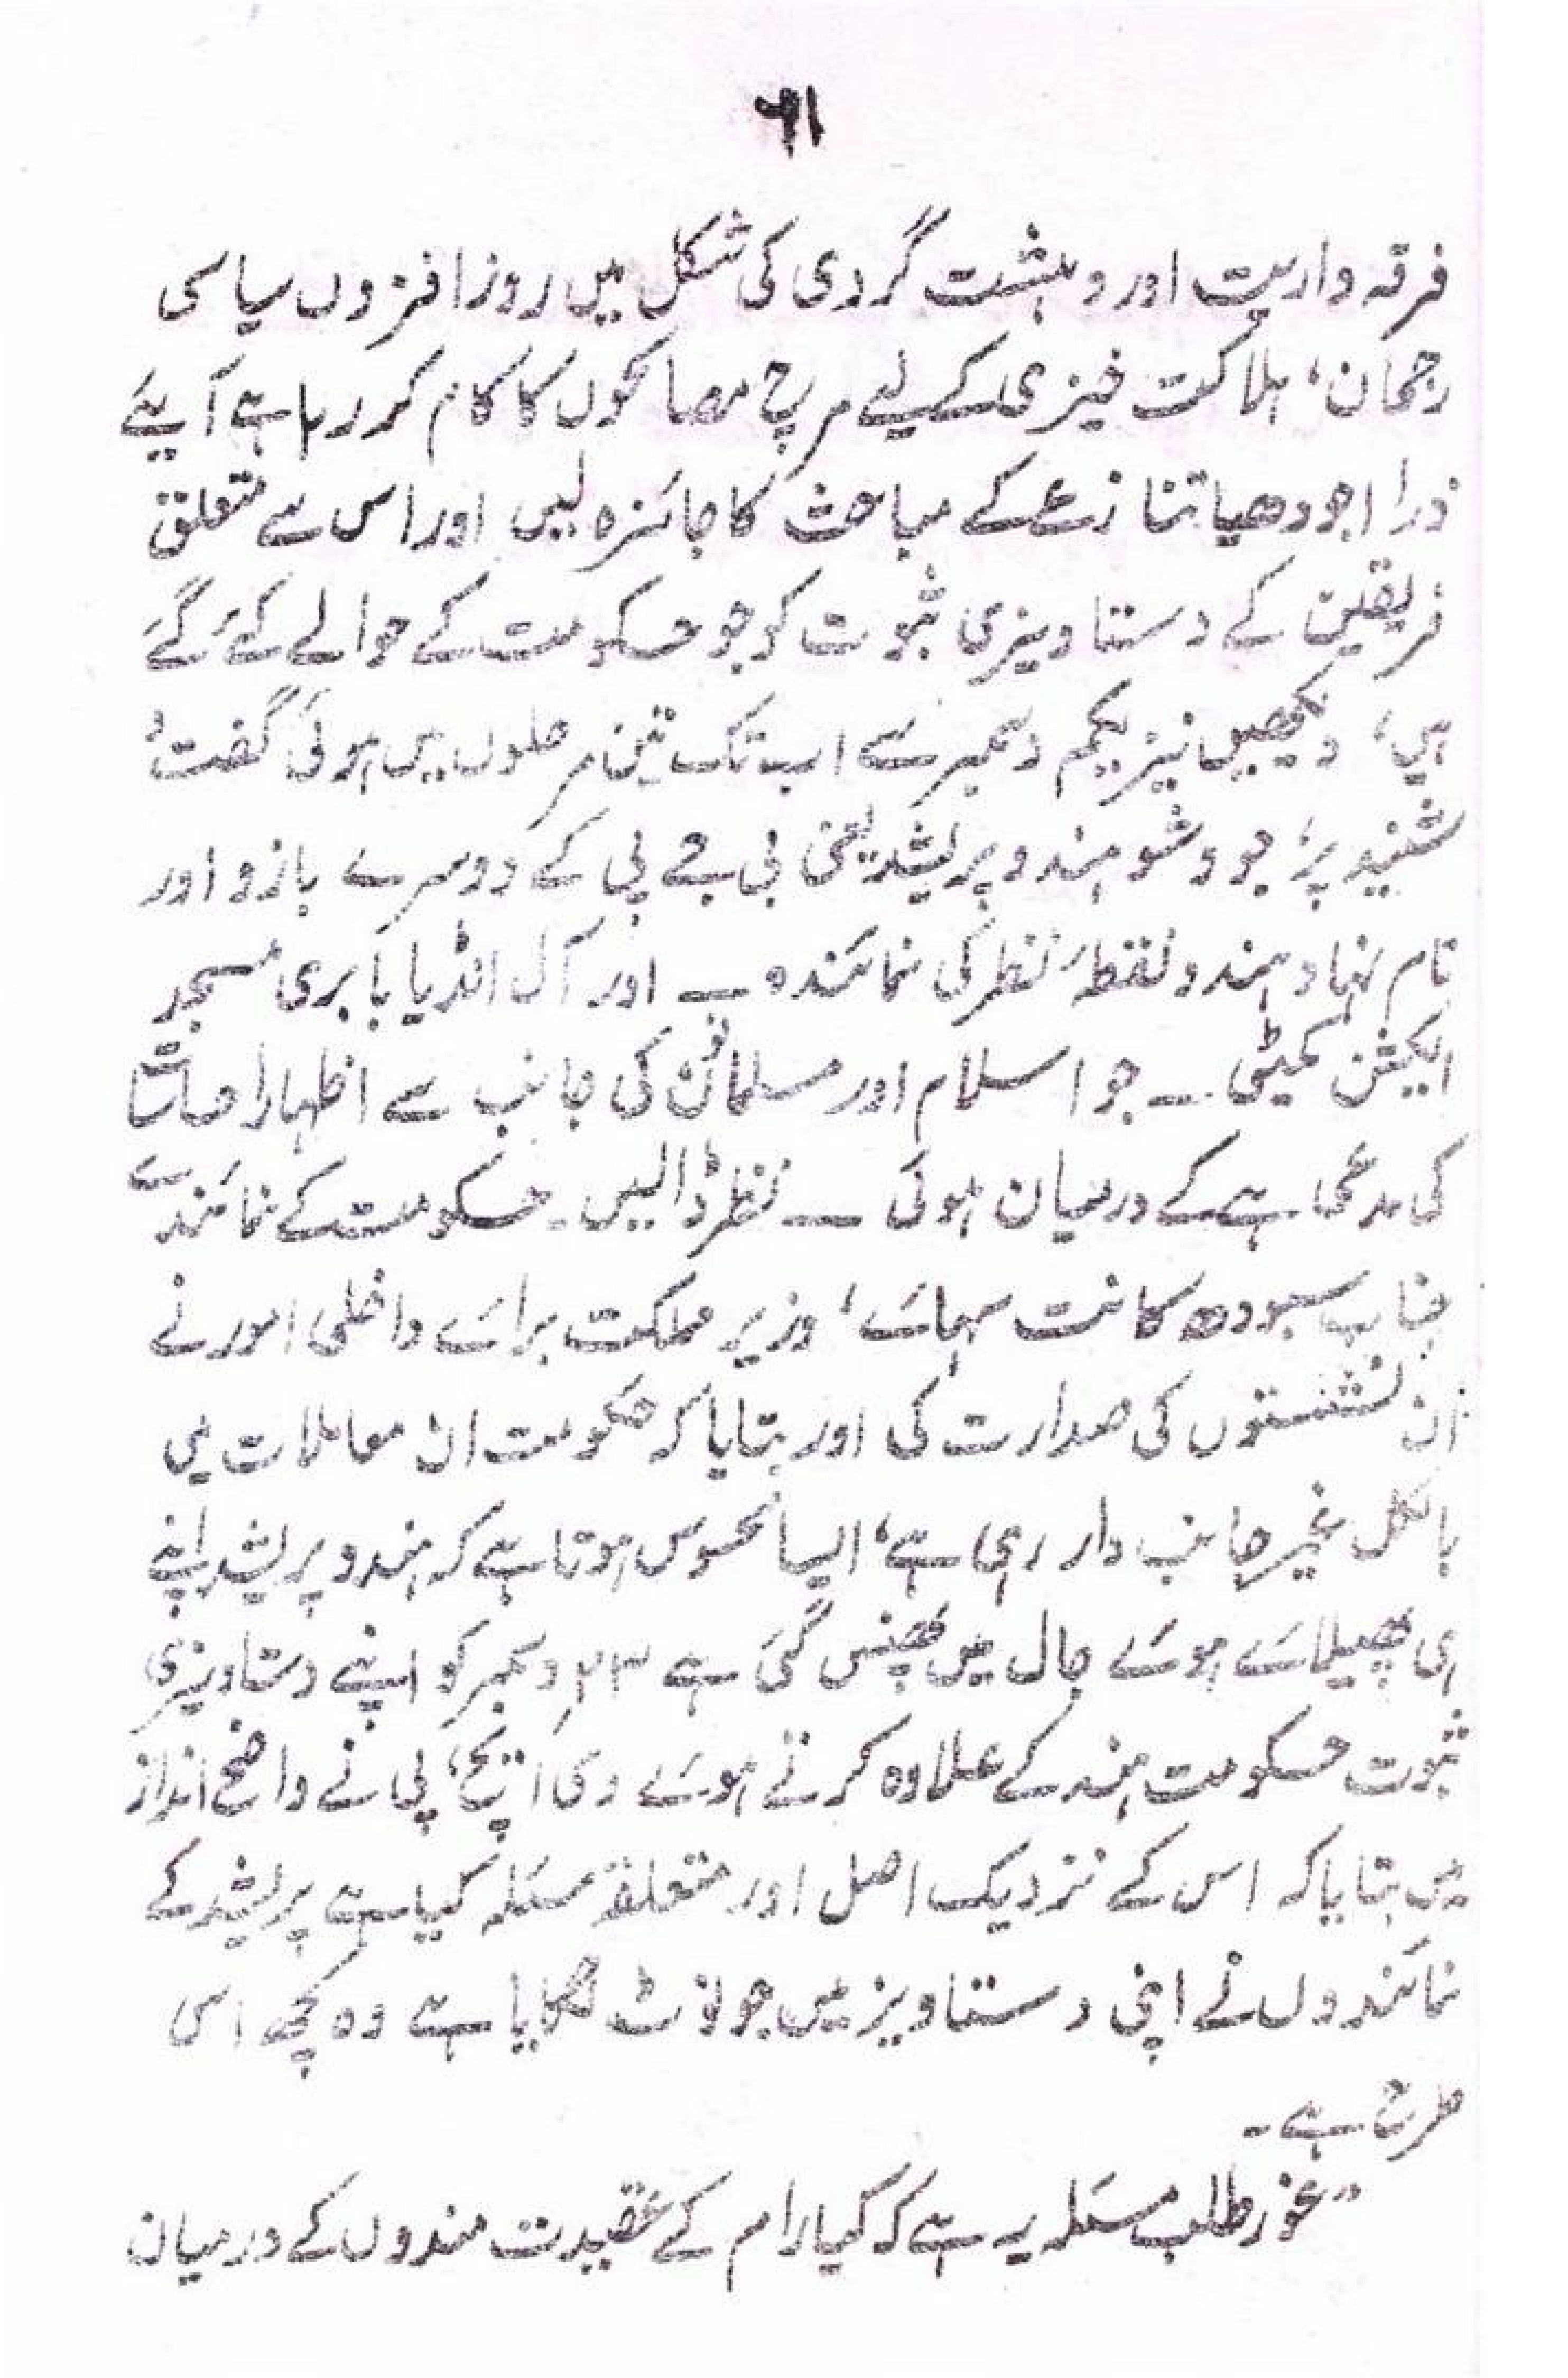 ۶۱
فرقہ واریت اور دہشت گردی کی شکل میں روز افزوں سیاسی
رجحان، ہلاکت خیزی کے لیے مرچ مصالحوں کا کام کر رہا ہے آیئے
ذرا اجودھیا تنازعے کے مباحث کا جائزہ لیں اور اس سے متعلق
فریقین کے دستاویزی ثبوت کو جو حکومت کے حوالے کئے گئے
ہیں، دیکھیں نیز یکم دسمبر سے اب تک تین مرحلوں میں ہوئی گفت و
شنید پر، جو وشو ہندو پریشد یعنی بی جے پی کے دوسرے بازو اور
نام نہاد ہندو نقطۂ نظر کی نمائندہ ـــ اور آل انڈیا بابری مسجد
ایکشن کمیٹی ـــ جو اسلام اور مسلمانوں کی جانب سے اظہار احساسات
کی مدعی ہے کے درمیان ہوئی ـــ نظر ڈالیں۔ حکومت کے نمائندے
جناب سبودھ کانت سہائے، وزیر مملکت برائے داخلی امور نے
ان نشستوں کی صدارت کی اور بتایا کہ حکومت ان معاملات میں
بالکل غیر جانب دار رہی ہے، ایسا محسوس ہوتا ہے کہ ہندو پریشد اپنے
ہی پھیلائے ہوئے جال میں پھنس گئی ہے ۲۳ دسمبر کو اپنے دستاویزی
ثبوت حکومت ہند کے علاوہ کرتے ہوئے وی، ایچ، پی نے واضح انداز
میں بتایا کہ اس کے نزدیک اصل اور متعلقہ مسئلہ کیا ہے پریشد کے
نمائندوں نے اپنی دستاویز میں جو نوٹ لگایا ہے وہ کچھ اسی
طرح ہے۔
"غور طلب مسئلہ یہ ہے کہ کیا رام کے عقیدت مندوں کے درمیان